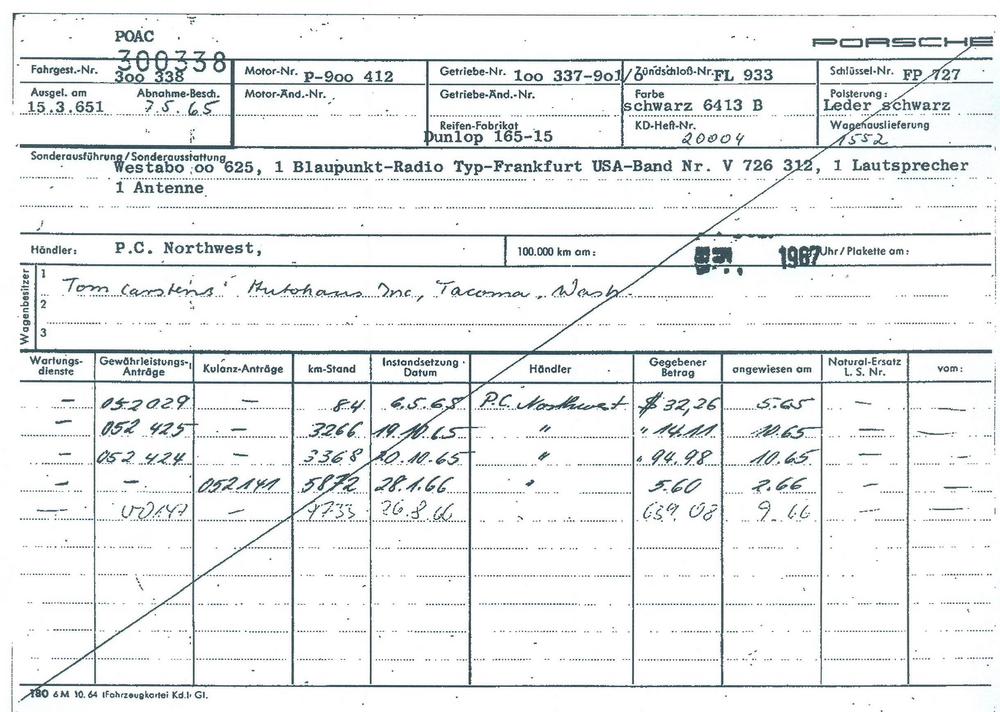 POAC
PORSCHE
300338
Fahrgest.-Nr. 3oo 338 Motor-Nr. P-9oo 412 Getriebe-Nr. 1oo 337-9o1/o Zündschloß-Nr. FL 933 Schlüssel-Nr. FP 727
Ausgel. am Abnahme-Besch. Motor-Änd.-Nr. Getriebe-Änd.-Nr. Farbe Polsterung:
15.3.651 7.5.65 schwarz 6413 B Leder schwarz
Reifen-Fabrikat KD-Heft-Nr. Wagenauslieferung
Dunlop 165-15 20004 1552
Sonderausführung/Sonderausstattung
Westabo oo 625, 1 Blaupunkt-Radio Typ-Frankfurt USA-Band Nr. V 726 312, 1 Lautsprecher
1 Antenne
Händler: P.C. Northwest, 100.000 km am: 1967 Uhr/Plakette am:
Wagenbesitzer
1 Tom Carstens' Autohaus Inc, Tacoma, Wash.
2
3
Wartungs-dienste Gewährleistungs-Anträge Kulanz-Anträge km-Stand Instandsetzung Datum Händler Gegebener Betrag angewiesen am Natural-Ersatz L. S. Nr. vom:
— 052029 — 84 6.5.65 P.C. Northwest $ 32,26 5.65 — —
— 052 425 — 3266 19.10.65 " " 14.11 10.65 — —
— 052 424 — 3368 20.10.65 " " 94.98 10.65 — —
— — 052141 5872 28.1.66 " 5.60 2.66 — —
— — 26.8.66 9.66 — —
180 6 M 10. 64 (Fahrzeugkartei Kd.) Gl.